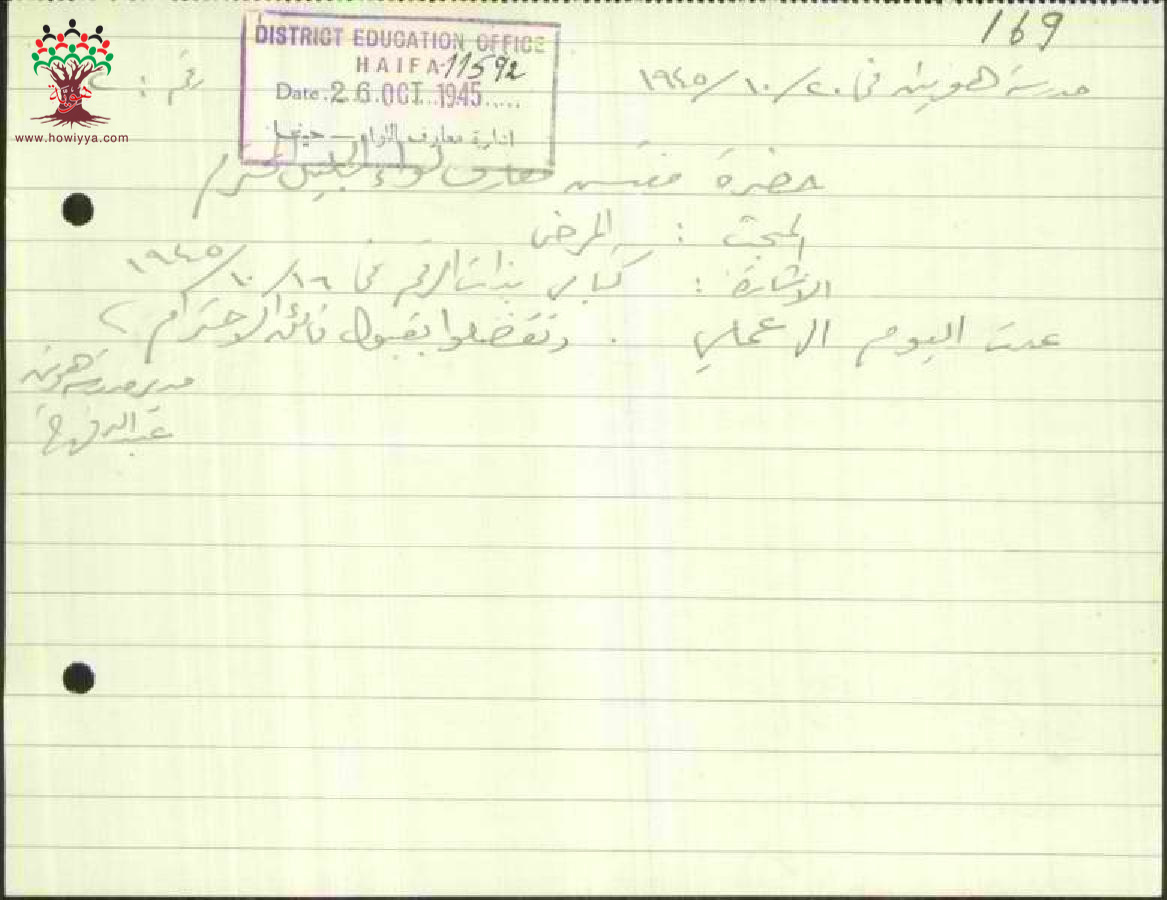 169
DISTRICT EDUCATION OFFICE
HAIFA 11592
Date 26 OCT 1945
ادارة معارف اللواء – حيفا
www.howiyya.com
هوية
رقم :
مدرسة هونين في ٢٠/١٠/١٩٤٥
حضرة مفتش معارف لواء الجليل المحترم
المبحث : المرض
الاشارة : كتابي بذات الرقم في ١٦/١٠/١٩٤٥
عدت اليوم الى عملي . وتفضلوا بقبول فائق الاحترام
مدير مدرسة هونين